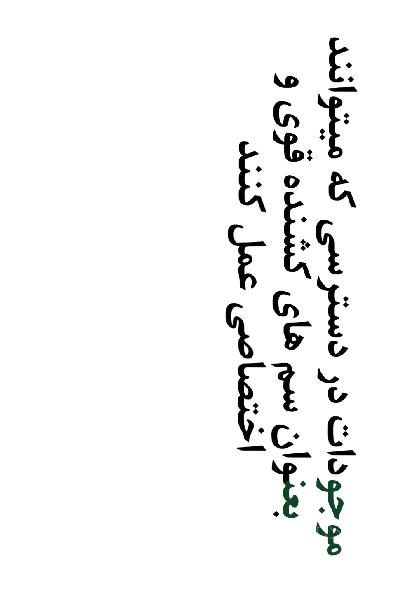 موجودات در دسترسی که میتوانند
بعنوان سم های کشنده قوی و
اختصاصی عمل کنند